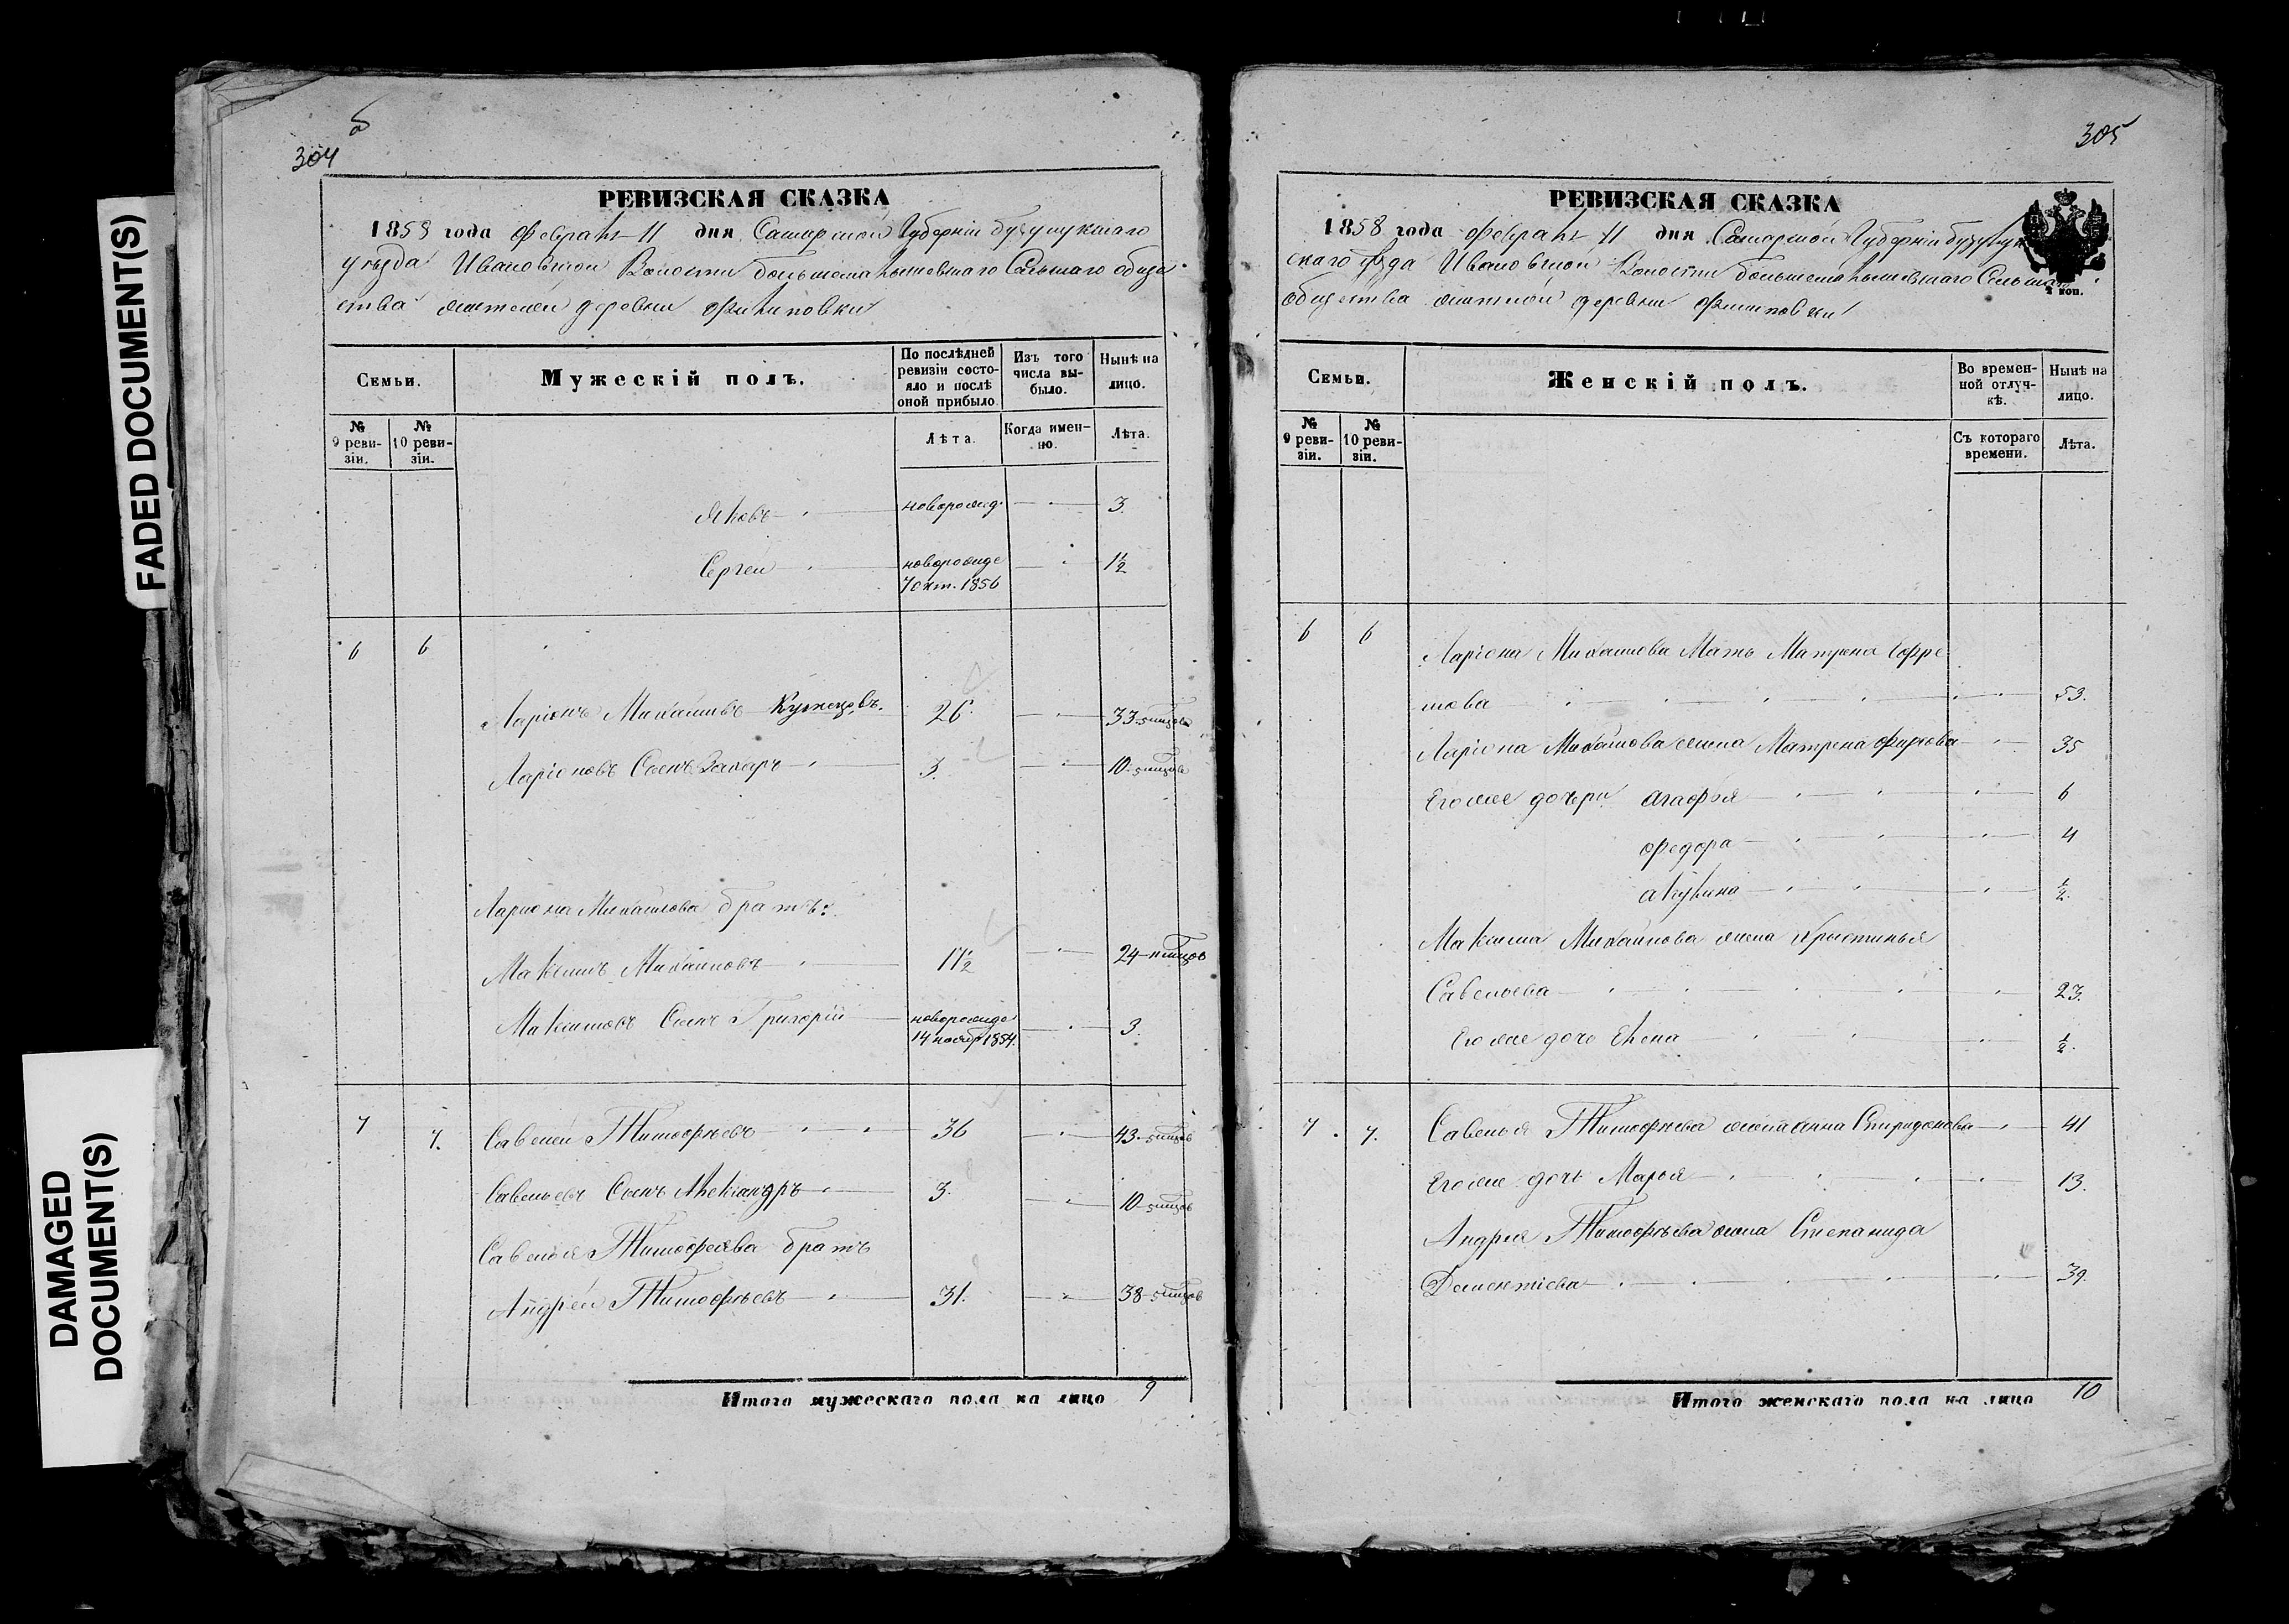 FADED DOCUMENT(S)
DAMAGED
DOCUMENT(S)
б
304
РЕВИЗСКАЯ СКАЗКА
1858 года февраля 11 дня Самарской Губерніи бузулукскаго
уѣзда Ивановской Волости Сельскаго обще
ства жителей деревни Филиповки
Семьи.
Мужескій полъ.
По послѣдней
ревизіи состо-
яло и послѣ
оной прибыло.
Изъ того
числа вы-
было.
Нынѣ на
лицо.
№
9 реви-
зіи.
№
10 реви-
зіи.
Лѣта.
Когда имен-
но.
Лѣта.
Яковъ новорожд. 3.
Сергей новорожде 1½
7 окт. 1856
6 6
Ларіонъ Михайлывъ Кузнецовъ. 26. 33
Ларіоновъ Сынъ Захаръ 3. 10
Лариона Михайлова братъ:
Максимъ Михайловъ 17½ 24
Максимовъ Сынъ Григорій новорожде 3.
14 нояб 1854.
7 7.
Савелей Тимофѣевъ 36 43
Савельевъ Сынъ Александръ 3. 10
Савелья Тимофеява братъ
Андрей Тимофѣевъ 31. 38
Итого мужескаго пола на лицо 9
305
РЕВИЗСКАЯ СКАЗКА
1858 года февраля 11 дня Самарской Губерніи бузулук
скаго уѣзда Ивановской Волости
общества жителей деревни Филиповки
2 коп.
Семьи.
Женскій полъ.
Во времен-
ной отлуч-
кѣ.
Нынѣ на
лицо.
№
9 реви-
зіи.
№
10 реви-
зіи.
Съ котораго
времени.
Лѣта.
6 6
Ларіона Михайлова Мать Матрена
53.
Ларіона Михайлова жена Матрена 35
Его же дочери Агафья 6
Федора 4
Акулина ½.
Максима Михайлова жена Христинья
Савельева 23.
Его же дочь Елена ½.
7. 7.
Савелья Тимофѣева жена Анна Спиридонова 41
Его же дочь Марья 13.
Андрея Тимофѣева жена Степанида
Дементіева 39.
Итого женскаго пола на лицо 10